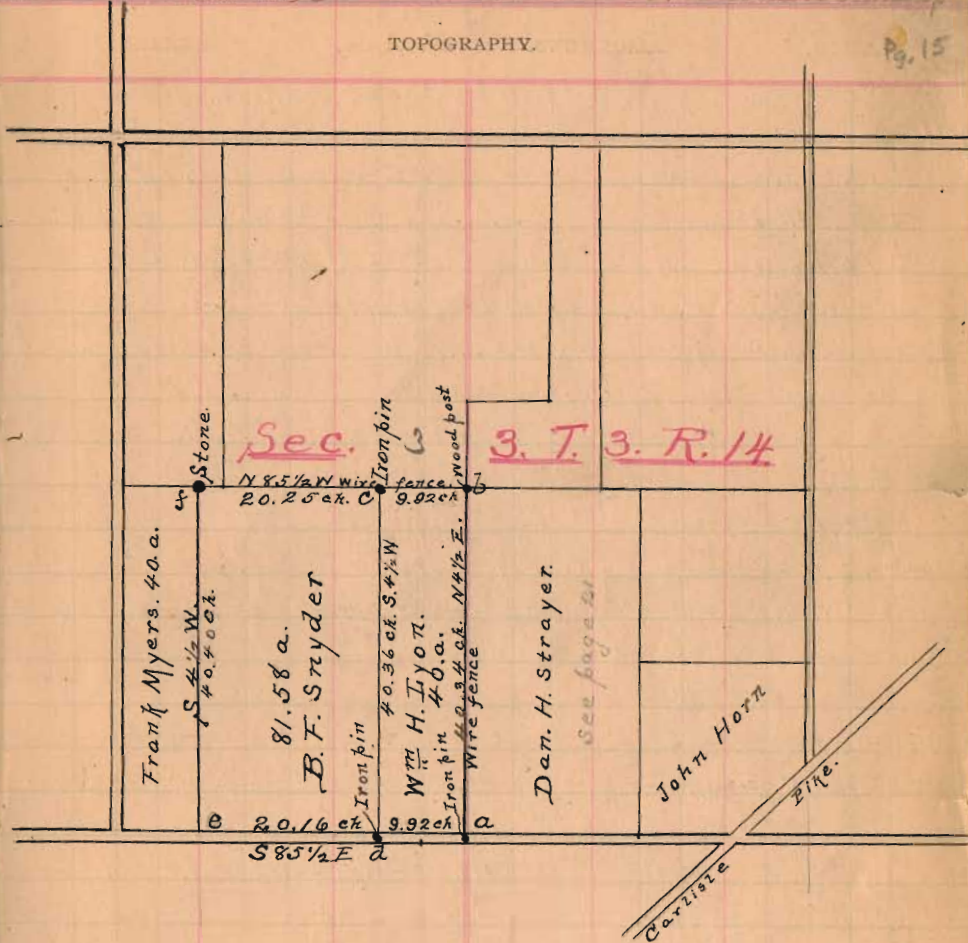 TOPOGRAPHY.
Pg. 15
Stone.
Sec. 3. T. 3. R. 14
3
Iron pin
Wood post
N 85 1/2 W wire fence.
20.25 ch. C 9.92 ch b
f
Frank Myers. 40.a.
S. 4 1/2 W.
40.40 ch.
81.58 a.
B. F. Snyder
Iron pin
40.36 ch. S. 4 1/2 W
Wm H. Lyon.
40.a.
Iron pin
40.34 ch. N 4 1/2 E.
Wire fence
Dan. H. Strayer.
see page
John Horn
e 20.16 ch 9.92 ch a
S 85 1/2 E d
Carlisle Pike.